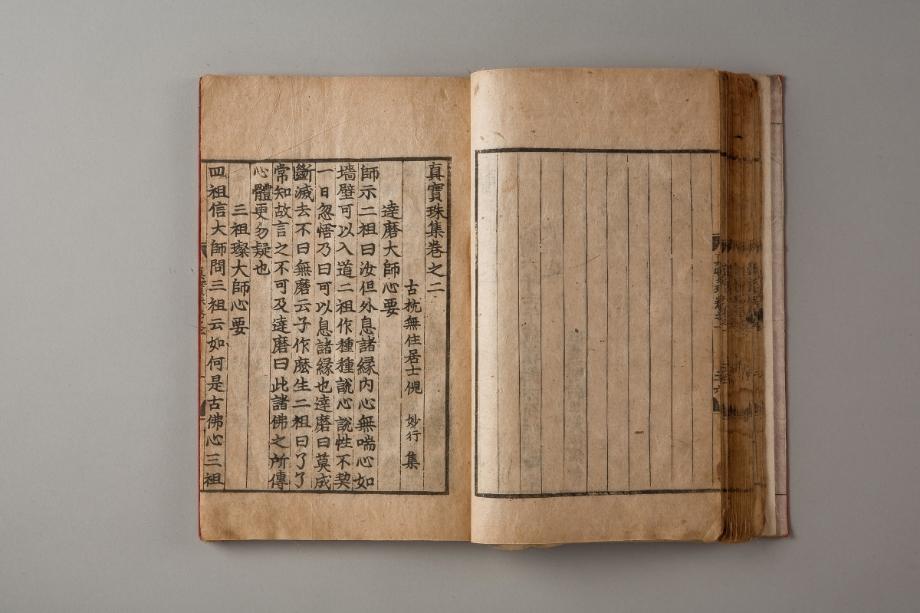 真寶珠集卷之二
古杭無住居士俔 妙行 集
達磨大師心要
師示二祖曰汝但外息諸緣内心無喘心如
墻壁可以入道二祖作種種說心說性不契
一日忽悟乃曰可以息諸緣也達磨曰莫成
斷滅去不曰無磨云子作麽生二祖曰了了
常知故言之不可及達磨曰此諸佛之所傳
心體更勿疑也
三祖璨大師心要
四祖信大師問三祖云如何是古佛心三祖